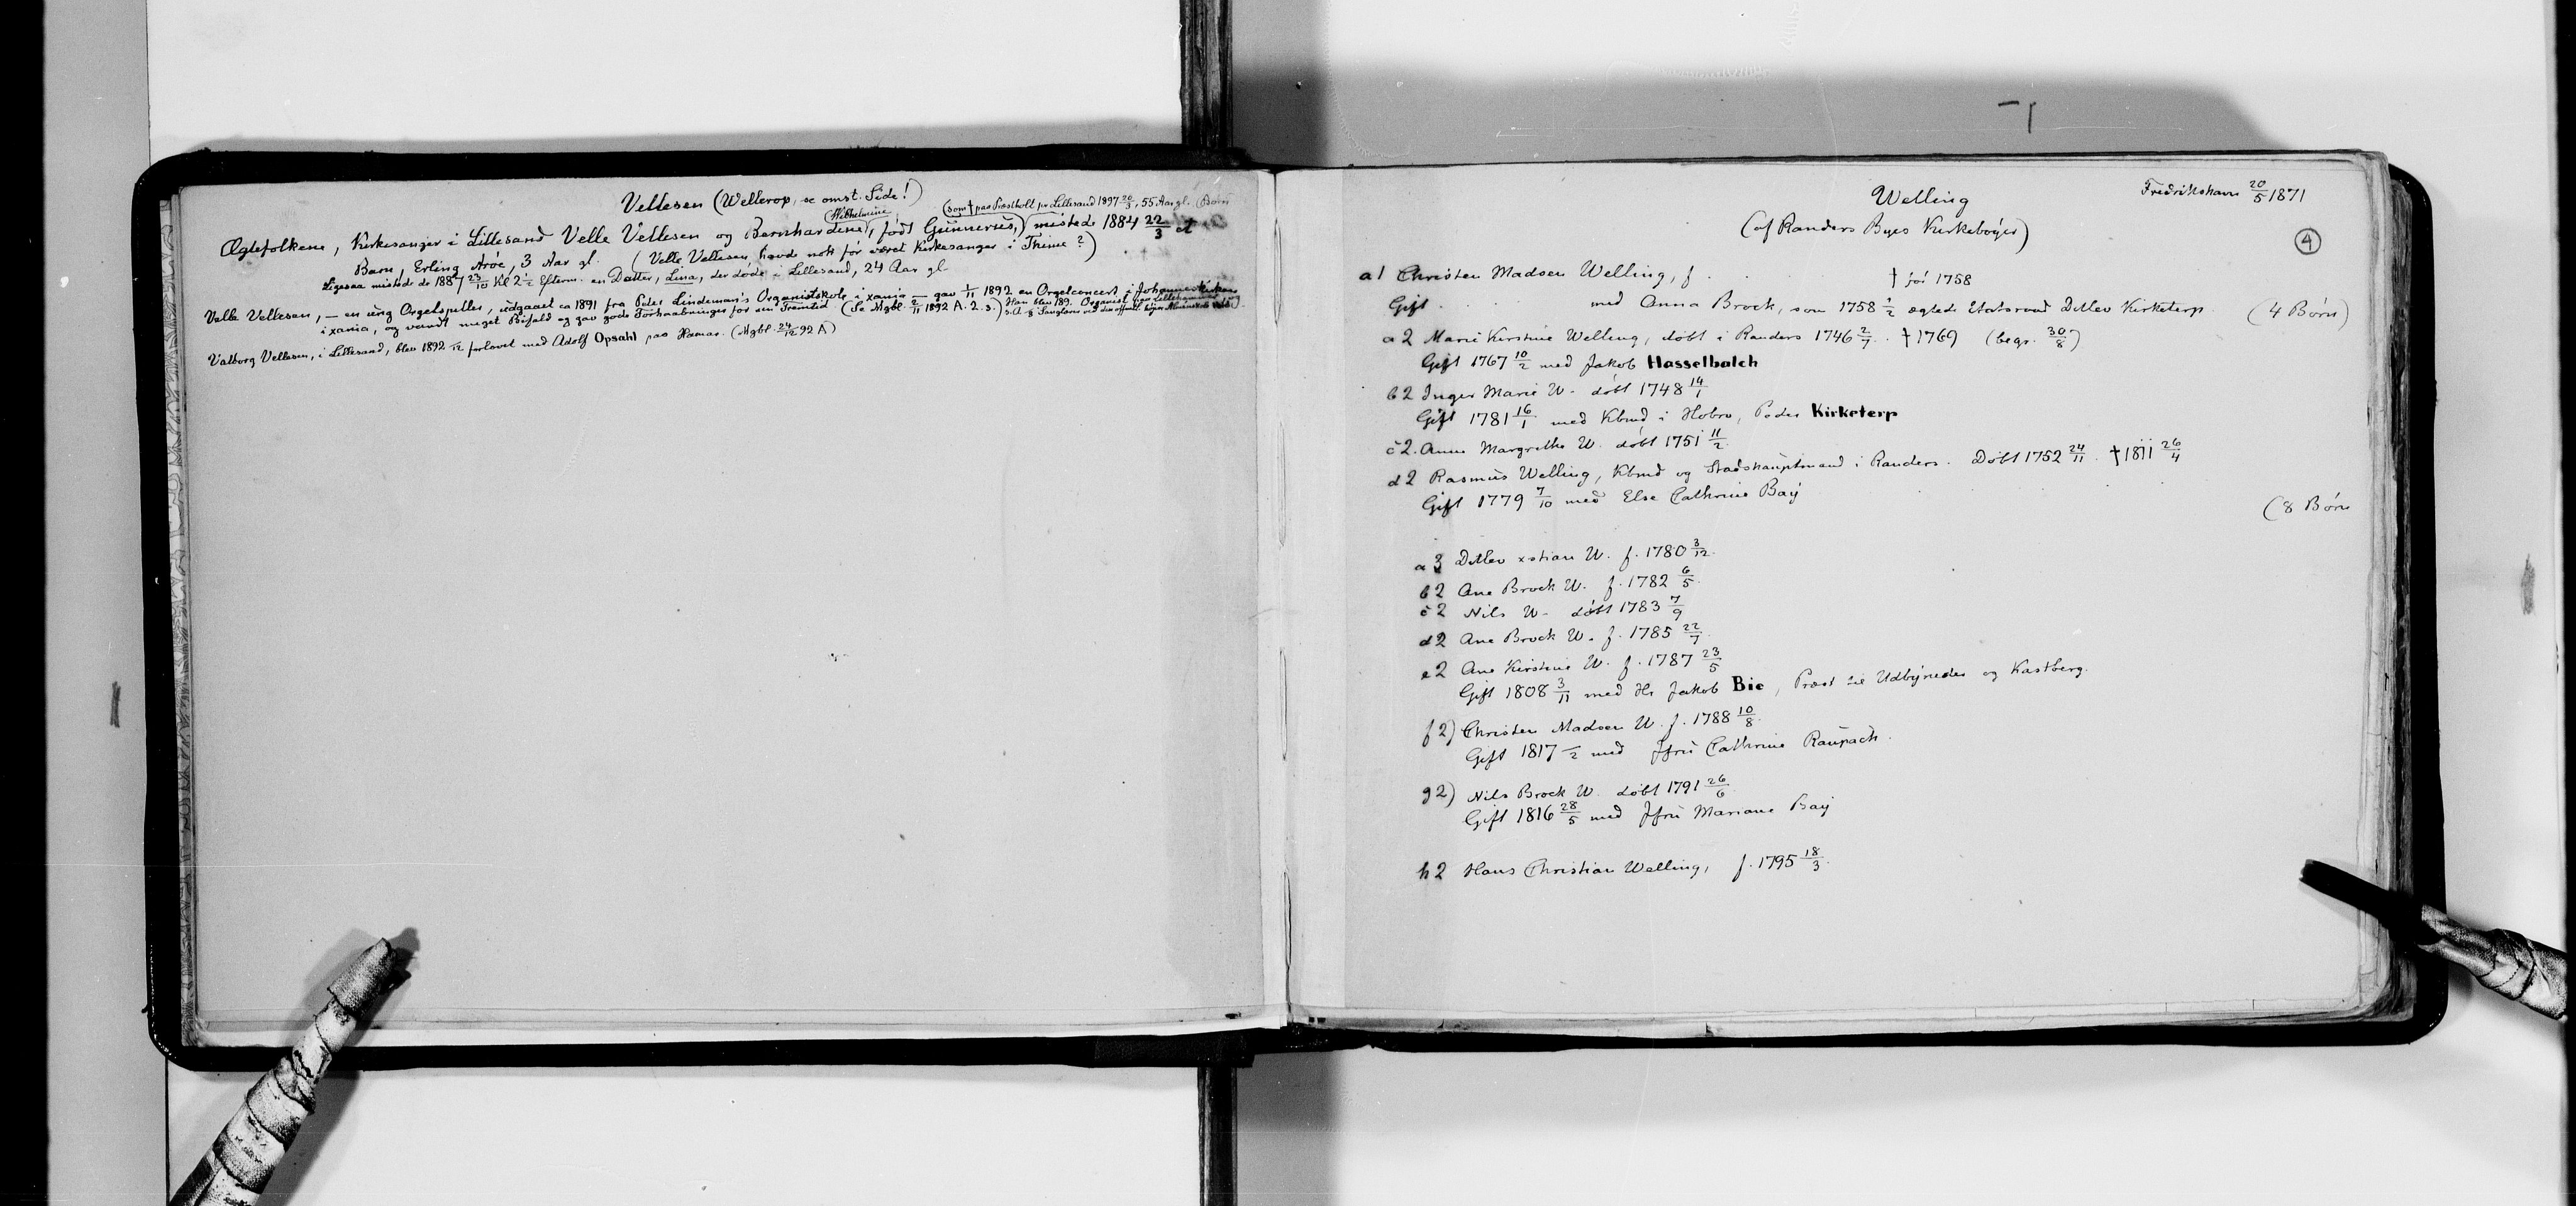 Vellesen (Wellerop, se omst. Side!)
(som † paa Præstholt pr Lillesand 1897 20/3, 55 Aar gl. (Børn
Wilhelmine
Ægtefolkene, Kirkesanger i Lillesand Velle Vellesen og Bernhardine, født Gunnersus,) mistede 1884 22/3 et
Barn, Erling Arøe, 3 Aar gl. (Velle Vellesen havde nok før været Kirkesanger i Thime?)
Ligesaa mistede de 1887 23/10 Kl 2 1/2 Efterm. en Datter, Lina, der døde i Lillesand, 24 Aar gl
Velle Vellesen, – en ung Orgelspiller, udgaaet ca 1891 fra Peder Lindeman's Organistskole i xania – gav 1/11 1892 en Orgelconcert i Johanneskirken
i xania, og vandt meget Bifald og gav gode Forhaabninger for sin Fremtid (Se Mgbl. 2/11 1892 A. 2. s.) Han blev 189. Organist paa Lillehammer
Valborg Vellesen, i Lillesand, blev 1892 /12 forlovet med Adolf Opsahl paa Hamar. (Mgbl. 24/12 92 A)
Welling
Fredrikshavn 20/5 1871
(af Randers Byes Kirkebøger)
4
a1 Christen Madsen Welling, f. † før 1758
Gift med Anna Brock, som 1758 1/2 ægtede Etatsraad Ditlev Kirketerp (4 Børn)
a2 Marie Kirstine Welling, døbt i Randers 1746 2/7. † 1769 (begr. 30/8)
Gift 1767 10/2 med Jakob Hasselbalch
b2 Inger Marie W. døbt 1748 14/1
Gift 1781 16/1 med Kbmd i Hobro, Peder Kirketerp
c2. Anne Margrethe W. døbt 1751 11/2
d2 Rasmus Welling, Kbmd og Stadshauptmand i Randers. Døbt 1752 24/11. † 1811 26/4
Gift 1779 7/10 med Else Cathrine Baÿ
(8 Børn
a3 Ditlev xstian W. f. 1780 3/12.
b2 Ane Brock W. f. 1782 6/5.
c2 Nils W. døbt 1783 7/9
d2 Ane Brock W. f. 1785 22/7.
e2 Ane Kirstine W. f. 1787 23/5
Gift 1808 3/11 med Hr Jakob Bie, Præst til Udbyneder og Kastberg.
f2) Christen Madsen W. f. 1788 10/8.
Gift 1817 /2 med Jfru Cathrine Raupach.
g2) Nils Brock W. døbt 1791 26/6
Gift 1816 28/5 med Jfru Mariane Baÿ
h2 Hans Christian Welling, f. 1795 18/3.